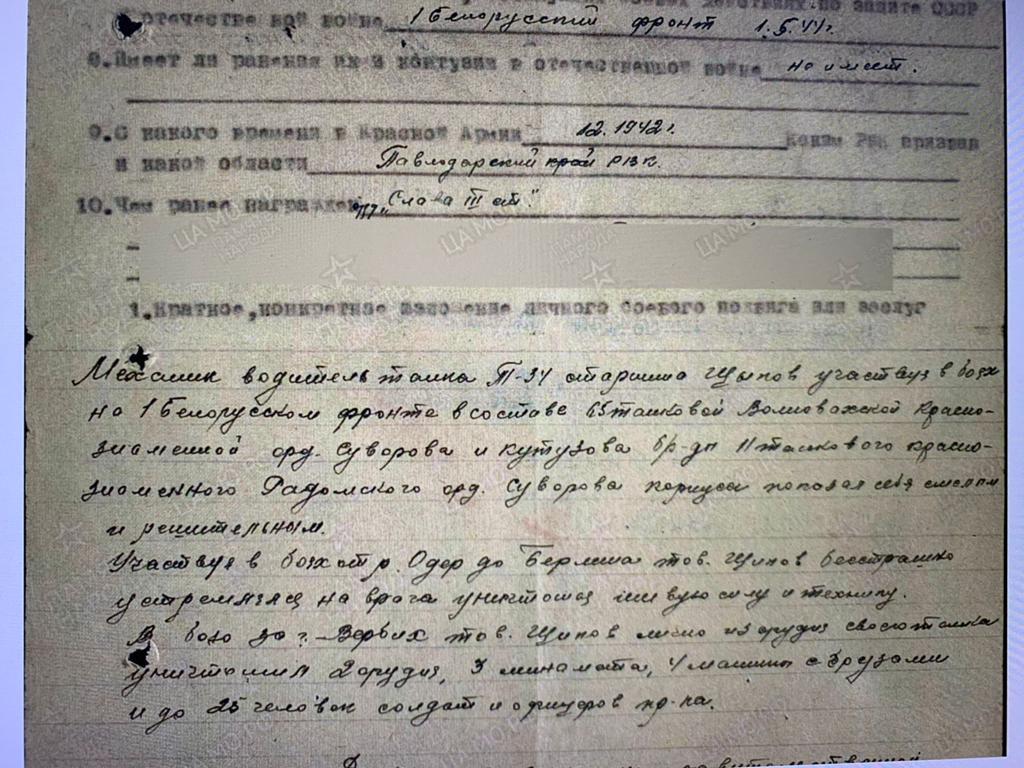 действиях по защите СССР
в отечественной войне 1 Белорусский фронт 1.5.44г.
8. Имеет ли ранения и контузии в отечественной войне не имеет.
9. С какого времени в Красной Армии 12.1942г. Каким РВК призван
и какой области Павлодарский край РВК.
10. Чем ранее награжден "Слава III ст."
ЦА МО РФ ПАМЯТЬ НАРОДА ЦА МО РФ
1. Краткое, конкретное изложение личного боевого подвига или заслуг
Механик водитель танка Т-34 старшина Щипов участвуя в боях
на 1 Белорусском фронте в составе 65 танковой Волновахской Красно-
знаменной орд. Суворова и Кутузова бр-ды 11 танкового красно-
знаменного Радомского орд. Суворова корпуса показал себя смелым
и решительным.
Участвуя в боях от р. Одер до Берлина тов. Щипов бесстрашно
устремлялся на врага уничтожая живую силу и технику.
В бою за г. Вербих тов. Щипов лично из орудия своего танка
уничтожил 2 орудия, 3 миномета, 4 машины с грузами
и до 25 человек солдат и офицеров пр-ка.